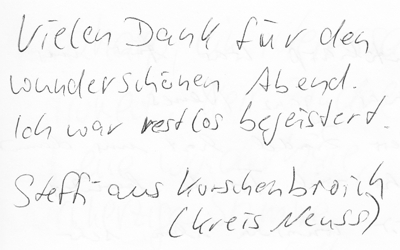 Vielen Dank für den
wunderschönen Abend.
Ich war restlos begeistert.
Steffi aus Korschenbroich
(Kreis Neuss)